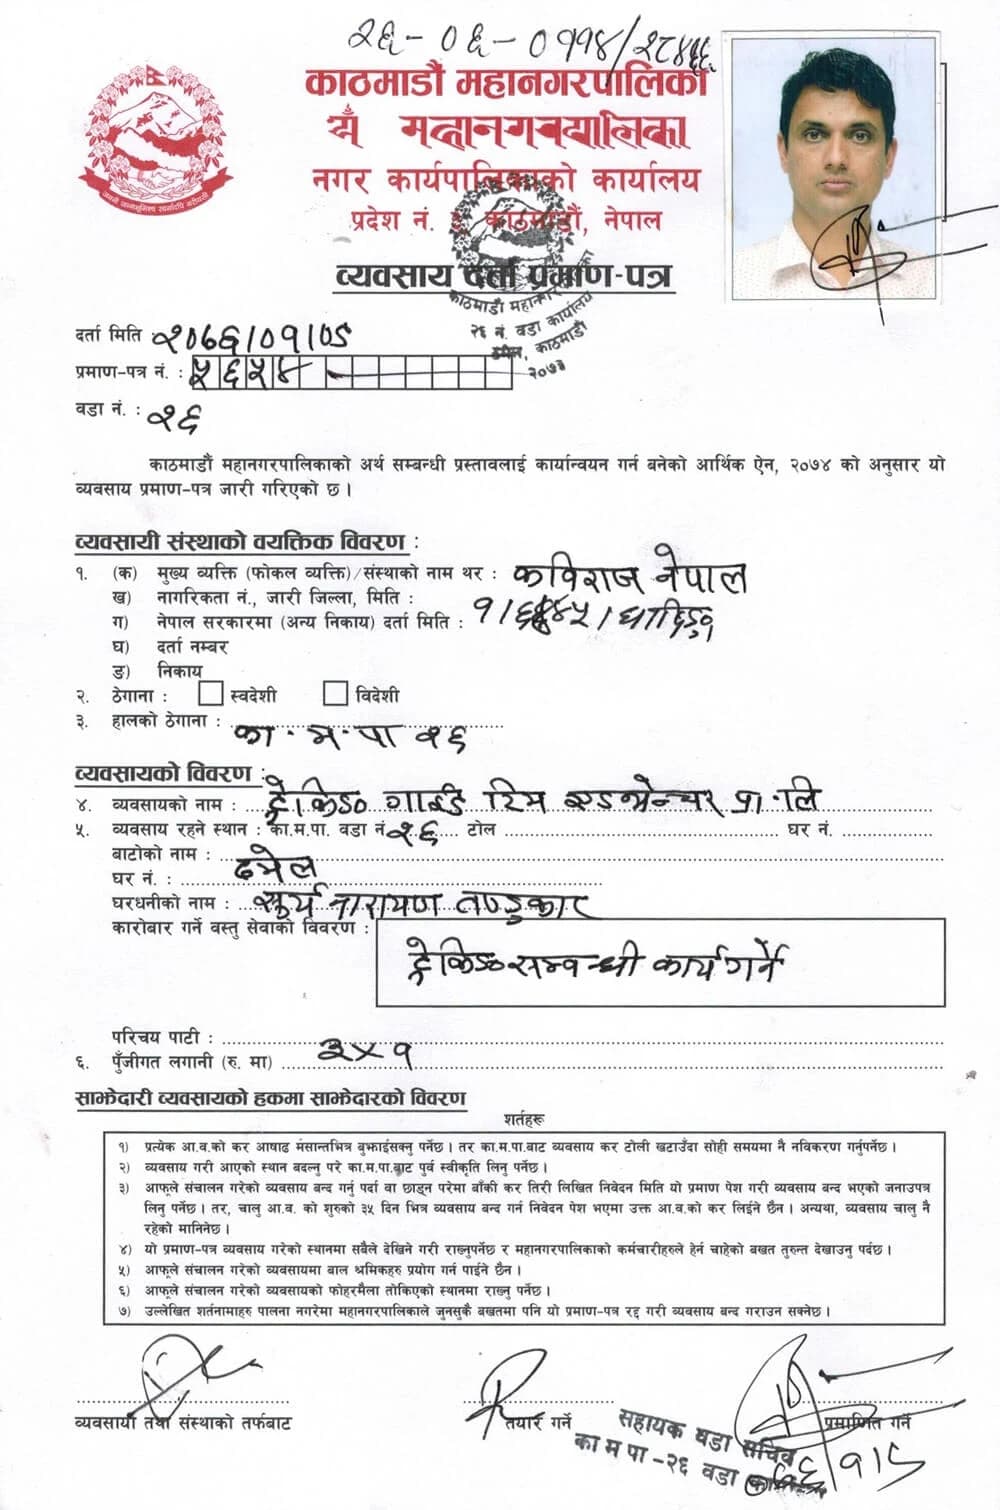 २६-०६-०११४/२८४६६
काठमाडौं महानगरपालिका
नगर कार्यपालिकाको कार्यालय
प्रदेश नं. ३, काठमाडौं, नेपाल
व्यवसाय दर्ता प्रमाण-पत्र
काठमाडौं महानगरपालिका
२६ नं. वडा कार्यालय
ठमेल, काठमाडौं
२०७३
दर्ता मिति : २०७६/०१/०८
प्रमाण-पत्र नं. : ५६५४
वडा नं. : २६
काठमाडौं महानगरपालिकाको अर्थ सम्बन्धी प्रस्तावलाई कार्यान्वयन गर्न बनेको आर्थिक ऐन, २०७४ को अनुसार यो
व्यवसाय प्रमाण-पत्र जारी गरिएको छ ।
व्यवसायी संस्थाको वयक्तिक विवरण :
१. (क) मुख्य व्यक्ति (फोकल व्यक्ति)/संस्थाको नाम थर : कविराज नेपाल
ख) नागरिकता नं., जारी जिल्ला, मिति :
ग) नेपाल सरकारमा (अन्य निकाय) दर्ता मिति :
घ) दर्ता नम्बर
ङ) निकाय
२. ठेगाना : स्वदेशी विदेशी
३. हालको ठेगाना : का.म.पा २६
व्यवसायको विवरण :
४. व्यवसायको नाम : ट्रेकिङ गाईड टिम एडभेन्चर प्रा.लि
५. व्यवसाय रहने स्थान : का.म.पा. वडा नं. २६ टोल घर नं.
बाटोको नाम : ठमेल
घर नं. :
घरधनीको नाम : सूर्य नारायण तण्डुकार
कारोबार गर्ने वस्तु सेवाको विवरण :
ट्रेकिङ सम्बन्धी कार्य गर्ने
परिचय पाटी : ३x१
६. पुँजीगत लगानी (रु. मा)
साझेदारी व्यवसायको हकमा साझेदारको विवरण
शर्तहरू
१) प्रत्येक आ.व.को कर आषाढ मसान्तभित्र बुझाईसक्नु पर्नेछ । तर का.म.पा.बाट व्यवसाय कर टोली खटाउँदा सोही समयमा नै नविकरण गर्नुपर्नेछ ।
२) व्यवसाय गरी आएको स्थान बदल्नु परे का.म.पा.बाट पुर्व स्वीकृति लिनु पर्नेछ ।
३) आफूले संचालन गरेको व्यवसाय बन्द गर्नु पर्दा वा छाड्न परेमा बाँकी कर तिरी लिखित निवेदन मिति यो प्रमाण पेश गरी व्यवसाय बन्द भएको जनाउपत्र
लिनु पर्नेछ । तर, चालु आ.व. को शुरुको ३५ दिन भित्र व्यवसाय बन्द गर्न निवेदन पेश भएमा उक्त आ.व.को कर लिईने छैन । अन्यथा, व्यवसाय चालु नै
रहेको मानिनेछ ।
४) यो प्रमाण-पत्र व्यवसाय गरेको स्थानमा सबैले देखिने गरी राख्नुपर्नेछ र महानगरपालिकाको कर्मचारीहरुले हेर्न चाहेको बखत तुरुन्त देखाउनु पर्दछ ।
५) आफूले संचालन गरेको व्यवसायमा बाल श्रमिकहरु प्रयोग गर्न पाईने छैन ।
६) आफूले संचालन गरेको व्यवसायको फोहरमैला तोकिएको स्थानमा राख्नु पर्नेछ ।
७) उल्लेखित शर्तनामाहरु पालना नगरेमा महानगरपालिकाले जुनसुकै बखतमा पनि यो प्रमाण-पत्र रद्द गरी व्यवसाय बन्द गराउन सक्नेछ ।
व्यवसायी तथा संस्थाको तर्फबाट तयार गर्ने प्रमाणित गर्ने
सहायक वडा सचिव
का म पा -२६ वडा